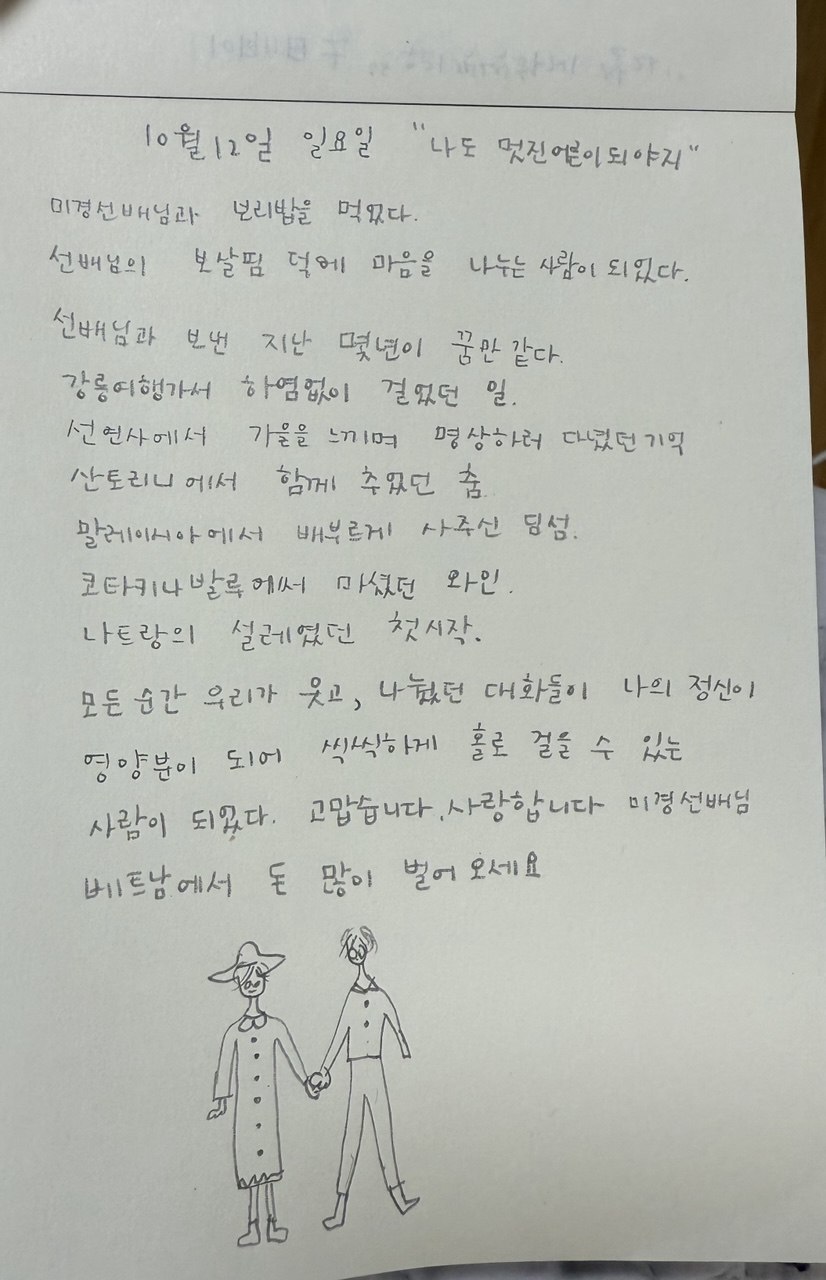 10월12일 일요일 "나도 멋진어른이되야지"
미경선배님과 보리밥을 먹었다.
선배님의 보살핌 덕에 마음을 나누는 사람이 되었다.
선배님과 보낸 지난 몇년이 꿈만 같다.
강릉여행가서 하염없이 걸었던 일.
선연사에서 가을을 느끼며 명상하러 다녔던기억
산토리니에서 함께 추었던 춤
말레이시아에서 배부르게 사주신 딤섬.
코타키나발루에서 마셨던 와인.
나트랑의 설레였던 첫시작.
모든 순간 우리가 웃고, 나눴던 대화들이 나의 정신이
영양분이 되어 씩씩하게 홀로 걸을 수 있는
사람이 되었다. 고맙습니다.사랑합니다 미경선배님
베트남에서 돈 많이 벌어오세요